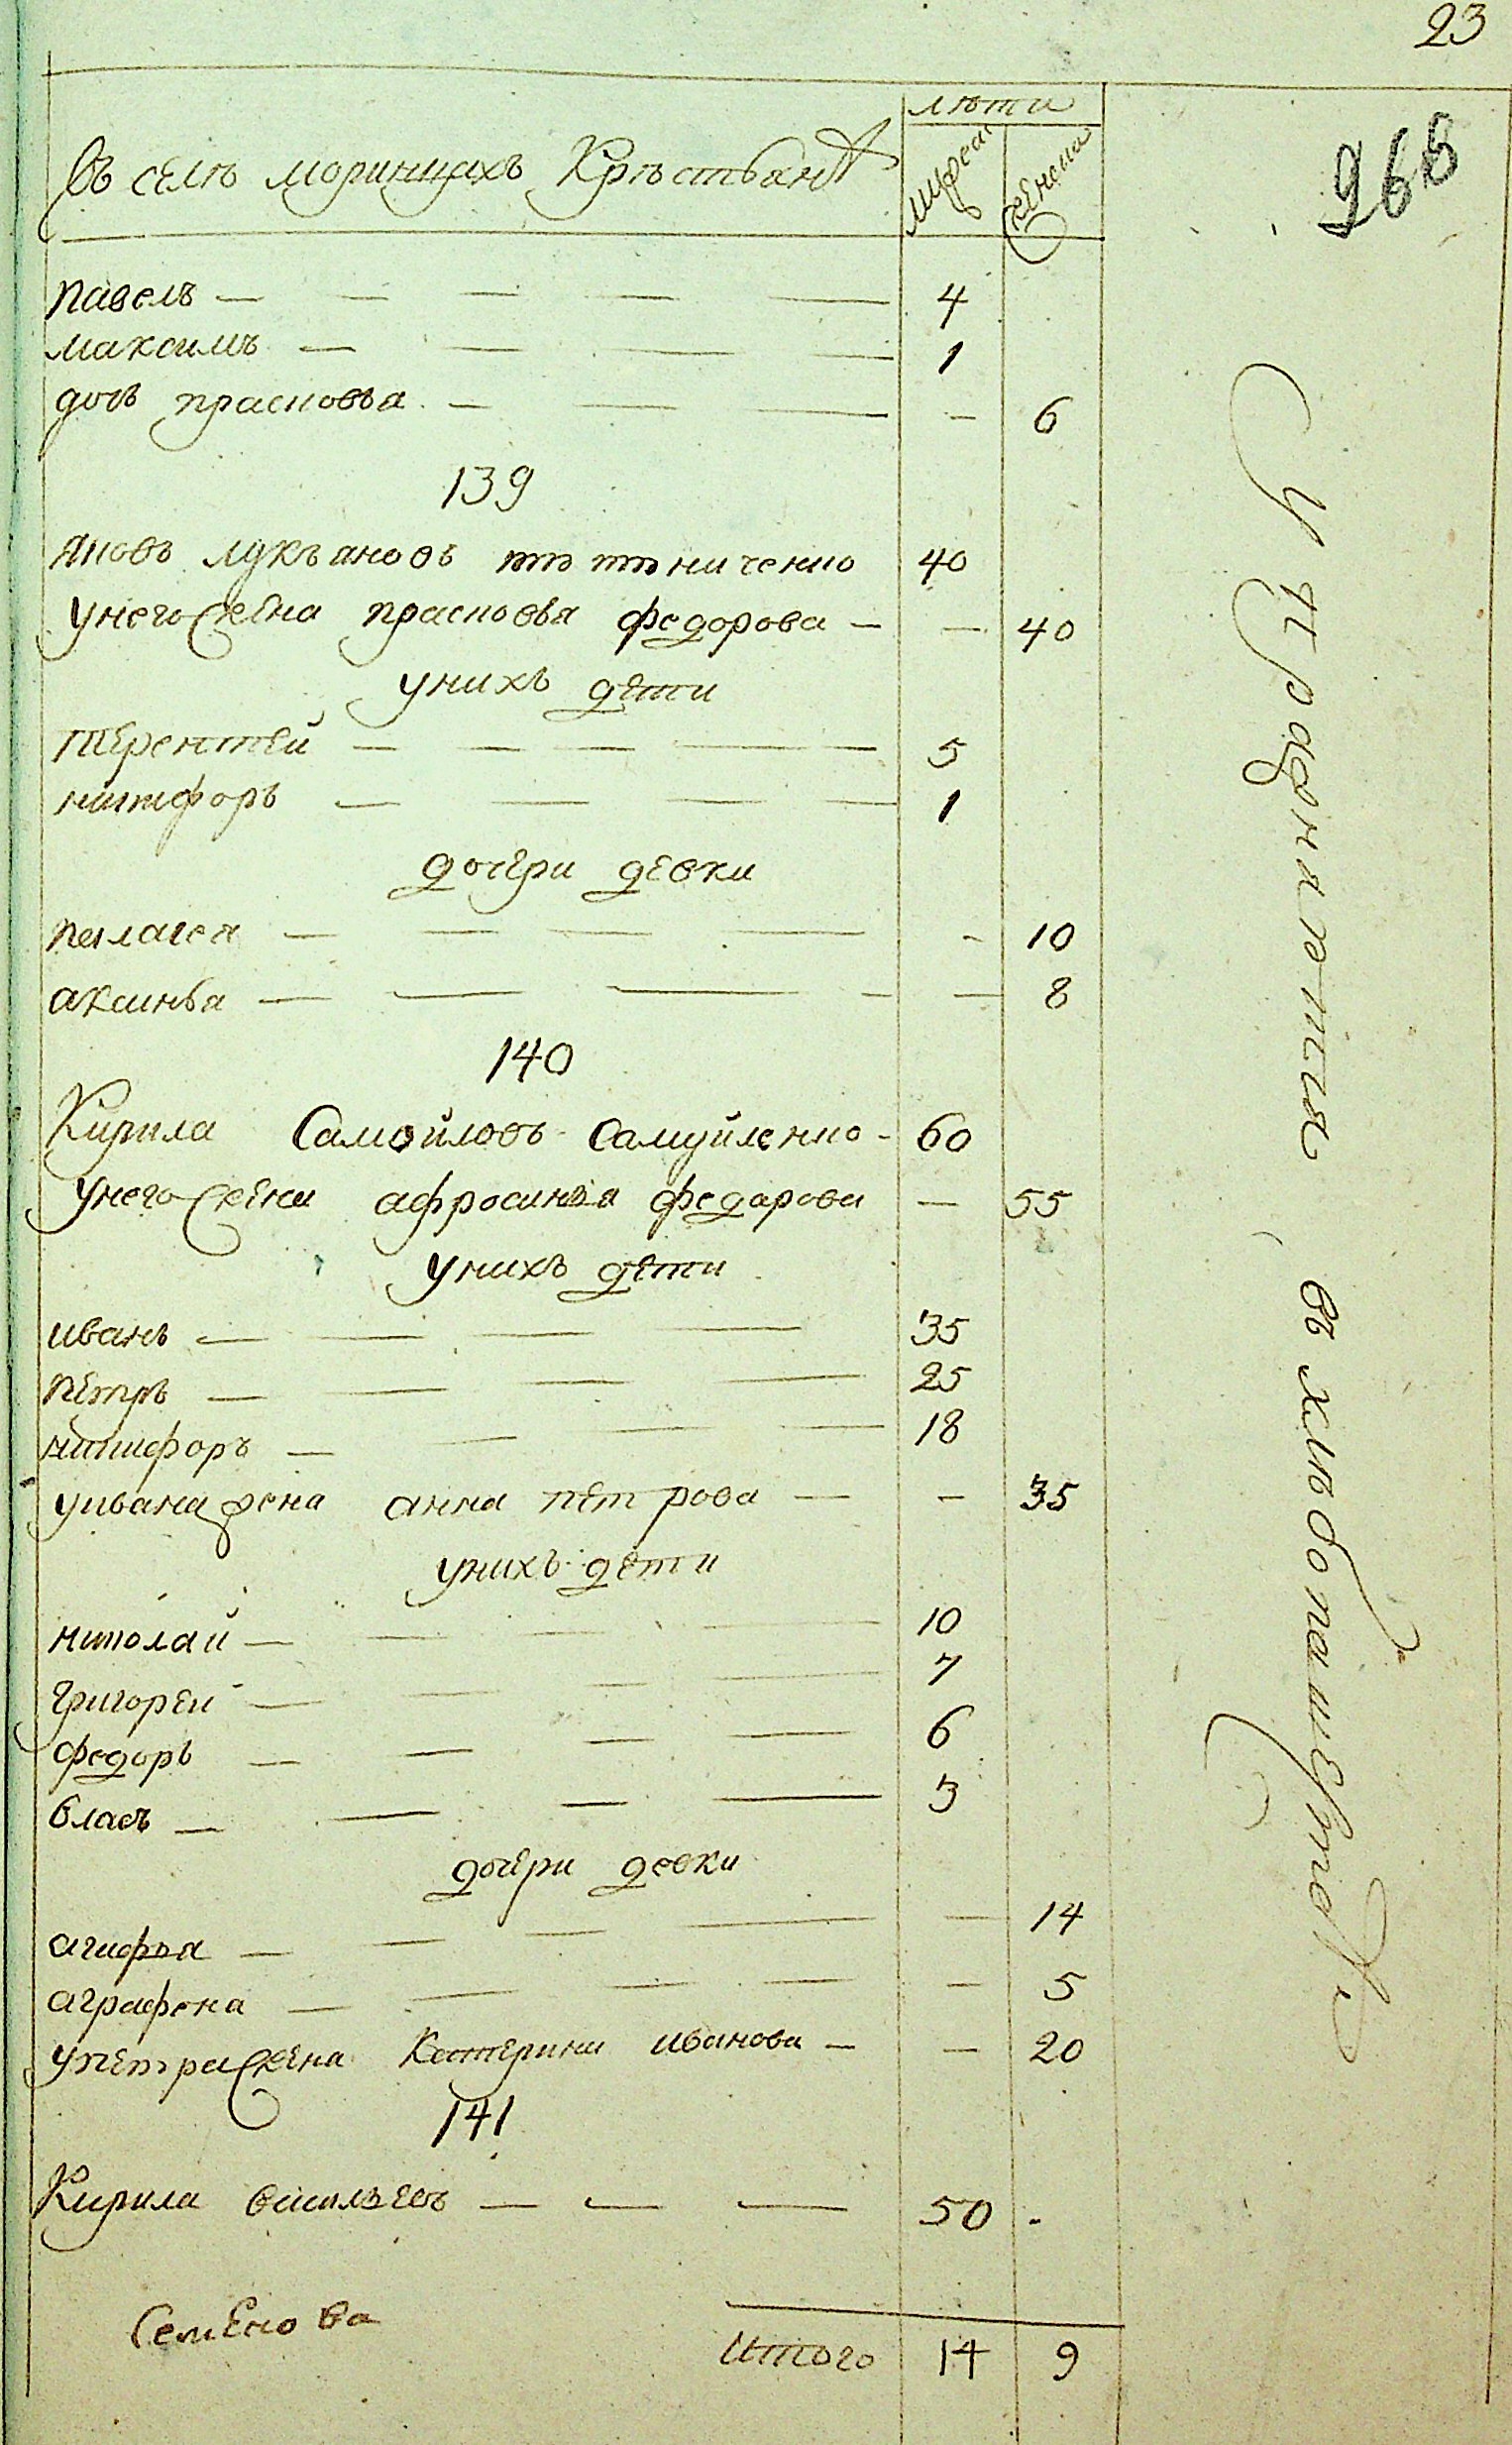 23
966
лѣти
въ селѣ моринцахъ Крѣстьянъ
мужеска
женска
павелъ — 4
максимъ — 1
дочь прасковья — — 6
139
яковъ лукьяновъ 40
унего жена прасковья федорова — — 40
унихъ дети
терентей — 5
никифоръ — 1
дочери девки
пелагея — - 10
аксинья — — 8
140
Кирила Самойловъ Самуйленко - 60
унего жена афросинья федарова — 55
унихъ дети
иванъ — 35
петръ — 25
никифоръ — 18
уивана жена анна петрова — — 35
унихъ дети
николай — 10
григорей — 7
федоръ — 6
власъ — 3
дочери девки
агафья — — 14
аграфена — — 5
упетра жена Катерина иванова — — 20
141
Кирила васильевъ — 50 -
Семенова
Итого 14 9
упражняются въ хлѣбопашестве